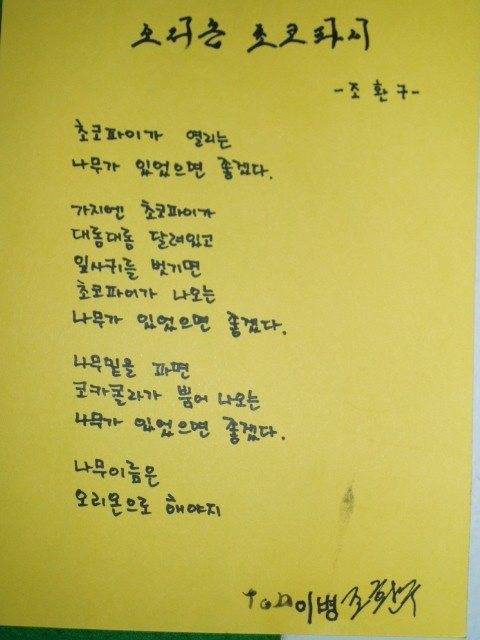 오리온 초코파이
- 조환구 -
초코파이가 열리는
나무가 있었으면 좋겠다.
가지엔 초코파이가
대롱대롱 달려있고
잎사귀를 벗기면
초코파이가 나오는
나무가 있었으면 좋겠다.
나무밑을 파면
코카콜라가 뿜어 나오는
나무가 있었으면 좋겠다.
나무이름은
오리온으로 해야지
이병 조환구